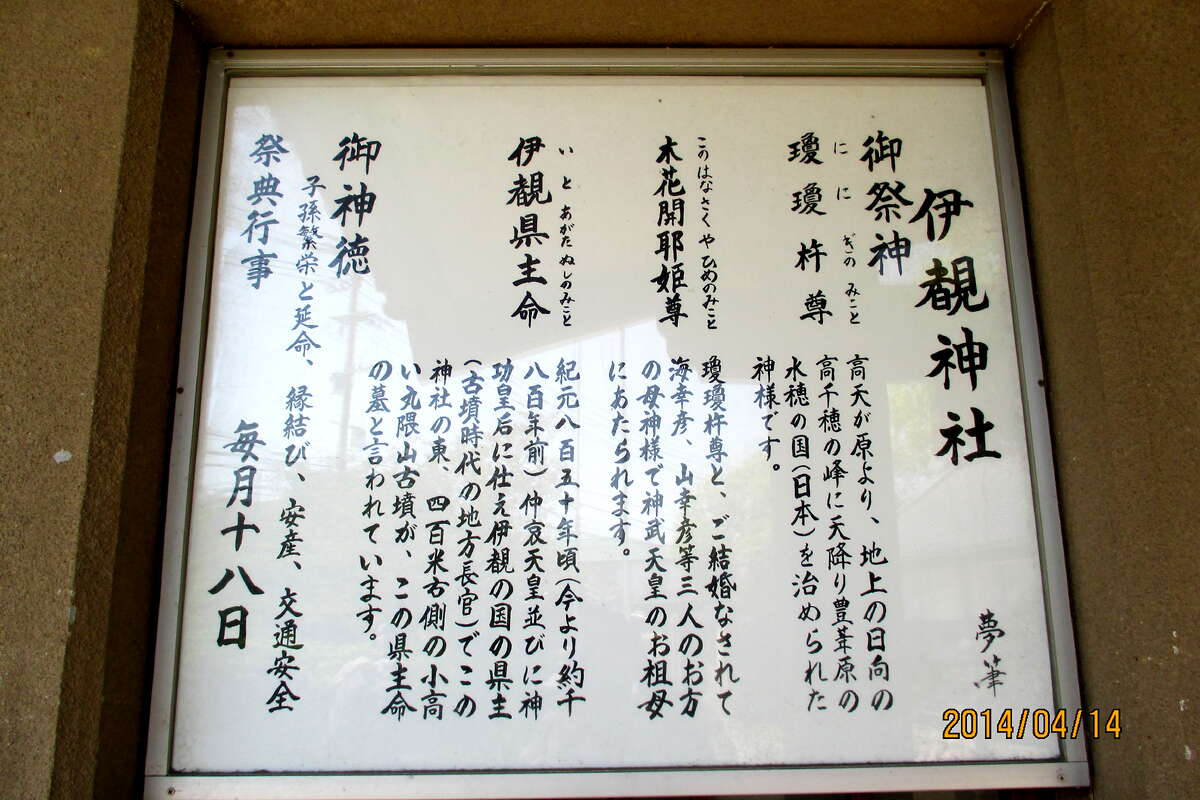 伊覩神社
夢筆
御祭神
ににぎのみこと
瓊瓊杵尊
高天が原より、地上の日向の
高千穂の峰に天降り豊葦原の
水穂の国(日本)を治められた
神様です。
このはなさくやひめのみこと
木花開耶姫尊
瓊瓊杵尊と、ご結婚なされて
海幸彦、山幸彦等三人のお方
の母神様で神武天皇のお祖母
におたられます。
いとあがたぬしのみこと
伊覩県主命
紀元八百五十年頃(今より約千
八百年前)仲哀天皇並びに神
功皇后に仕え伊覩の国の県主
(古墳時代の地方長官)でこの
神社の東、四百米右側の小高
い丸隈山古墳が、この県主命
の墓と言われています。
御神徳
子孫繁栄と延命、縁結び、安産、交通安全
祭典行事
毎月十八日
2014/04/14